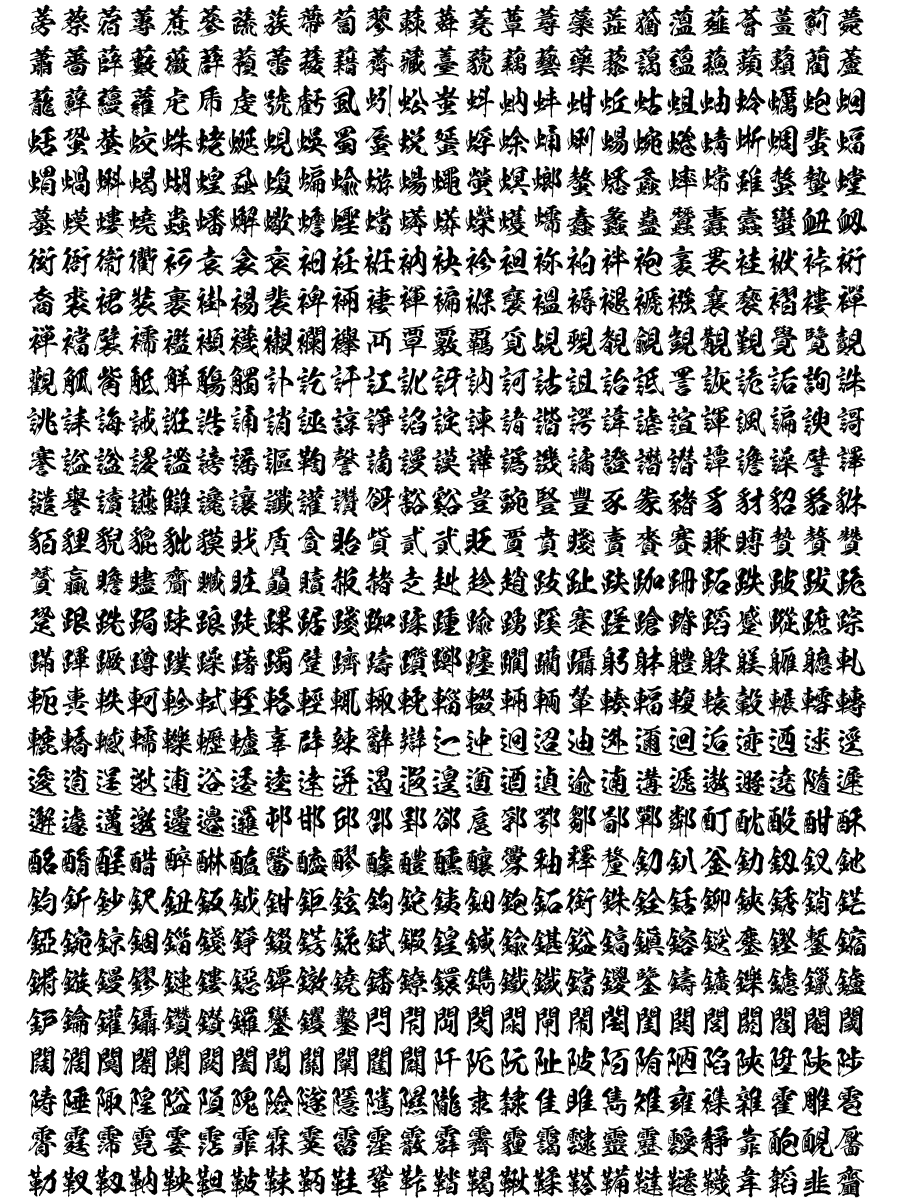 蒡蔡蓿蓴蔗蔘蔬蔟蔕蔔蓼蕀蕣蕘蕈蕁蘂蕋蕕薀薤薈薑薊薨
蕭薔薛藪薇薜蕷蕾薐藉薺藏薹藐藕藝藥藜藹蘊蘓蘋藾藺蘆
蘢蘚蘰蘿虍乕虔號虧虱蚓蚣蚩蚪蚋蚌蚶蚯蛄蛆蚰蛉蠣蚫蛔
蛞蛩蛬蛟蛛蛯蜒蜆蜈蜀蜃蛻蜑蜉蜍蛹蜊蜴蜿蜷蜻蜥蜩蜚蝠
蝟蝸蝌蝎蝴蝗蝨蝮蝙蝓蝣蝪蠅螢螟螂螯蟋螽蟀蟐雖螫蟄螳
蟇蟆螻蟯蟲蟠蠏蠍蟾蟶蟷蠎蟒蠑蠖蠕蠢蠡蠱蠶蠹蠧蠻衄衂
衒衙衞衢衫袁衾袞衵衽袵衲袂袗袒袮袙袢袍袤袰袿袱裃裄
裔裘裙裝裹褂裼裴裨裲褄褌褊褓襃褞褥褪褫襁襄褻褶褸襌
褝襠襞襦襤襭襪襯襴襷襾覃覈覊覓覘覡覩覦覬覯覲覺覽覿
觀觚觜觝觧觴觸訃訖訐訌訛訝訥訶詁詛詒詆詈詼詭詬詢誅
誂誄誨誡誑誥誦誚誣諄諍諂諚諫諳諧諤諱謔諠諢諷諞諛謌
謇謚諡謖謐謗謠謳鞫謦謫謾謨譁譌譏譎證譖譛譚譫譟譬譯
譴譽讀讌讎讒讓讖讙讚谺豁谿豈豌豎豐豕豢豬豸豺貂貉貅
貊貍貎貔豼貘戝貭貪貽貲貳貮貶賈賁賤賣賚賽賺賻贄贅贊
贇贏贍贐齎贓賍贔贖赧赭赱赳趁趙跂趾趺跏跚跖跌跛跋跪
跫跟跣跼踈踉跿踝踞踐踟蹂踵踰踴蹊蹇蹉蹌蹐蹈蹙蹤蹠踪
蹣蹕蹶蹲蹼躁躇躅躄躋躊躓躑躔躙躪躡躬躰軆躱躾軅軈軋
軛軣軼軻軫軾輊輅輕輒輙輓輜輟輛輌輦輳輻輹轅轂輾轌轉
轆轎轗轜轢轣轤辜辟辣辭辯辷迚迥迢迪迯邇迴逅迹迺逑逕
逡逍逞逖逋逧逶逵逹迸遏遐遑遒逎遉逾遖遘遞遨遯遶隨遲
邂遽邁邀邊邉邏邨邯邱邵郢郤扈郛鄂鄒鄙鄲鄰酊酖酘酣酥
酩酳酲醋醉醂醢醫醯醪醵醴醺釀釁釉釋釐釖釟釡釛釼釵釶
鈞釿鈔鈬鈕鈑鉞鉗鉅鉉鉤鉈銕鈿鉋鉐銜銖銓銛鉚鋏銹銷鋩
錏鋺鍄錮錙錢錚錣錺錵錻鍜鍠鍼鍮鍖鎰鎬鎭鎔鎹鏖鏗鏨鏥
鏘鏃鏝鏐鏈鏤鐚鐔鐓鐃鐇鐐鐶鐫鐵鐡鐺鑁鑒鑄鑛鑠鑢鑞鑪
鈩鑰鑵鑷鑽鑚鑼鑾钁鑿閂閇閊閔閖閘閙閠閨閧閭閼閻閹閾
闊濶闃闍闌闕闔闖關闡闥闢阡阨阮阯陂陌陏陋陷陜陞陝陟
陦陲陬隍隘隕隗險隧隱隲隰隴隶隸隹雎雋雉雍襍雜霍雕雹
霄霆霈霓霎霑霏霖霙霤霪霰霹霽霾靄靆靈靂靉靜靠靤靦靨
勒靫靱靹鞅靼鞁靺鞆鞋鞏鞐鞜鞨鞦鞣鞳鞴韃韆韈韋韜韭齏